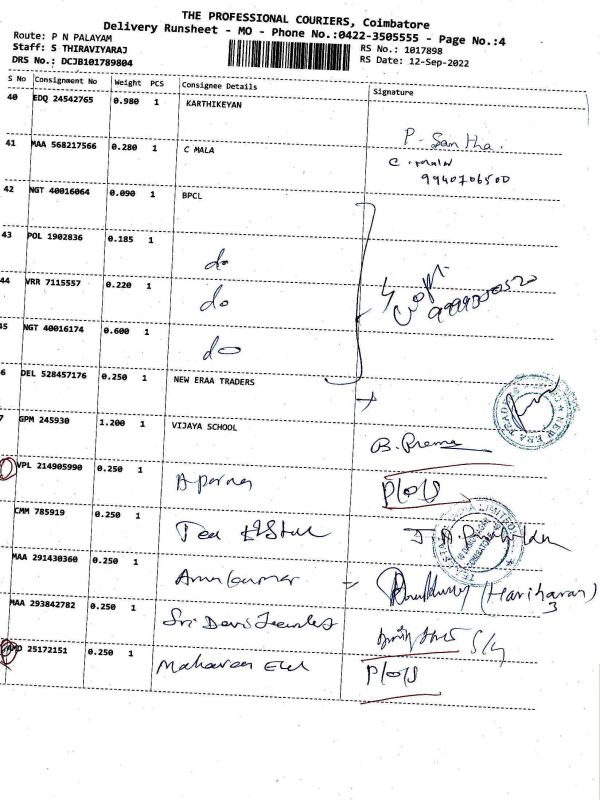 THE PROFESSIONAL COURIERS, Coimbatore
Delivery Runsheet - MO - Phone No.:0422-3505555 - Page No.:4
Route: P N PALAYAM
Staff: S THIRAVIYARAJ
RS No.: 1017898
DRS No.: DCJB101789804
RS Date: 12-Sep-2022
S No Consignment No Weight PCS Consignee Details Signature
40 EDQ 24542765 0.980 1 KARTHIKEYAN
P. Santha.
41 MAA 568217566 0.280 1 C MALA C. Mala
9940706500
42 NGT 40016064 0.090 1 BPCL
43 POL 1902836 0.185 1 do
44 VRR 7115557 0.220 1 do
45 NGT 40016174 0.600 1 do
6 DEL 528457176 0.250 1 NEW ERAA TRADERS
7 GPM 245930 1.200 1 VIJAYA SCHOOL B. Prema
VPL 214905990 0.250 1 Aparna
CMM 785919 0.250 1 Tea
MAA 291430360 0.250 1 Arunkumar (Hariharan)
MAA 293842782 0.250 1 Sri Devi
AMD 25172151 0.250 1 Mahaveer